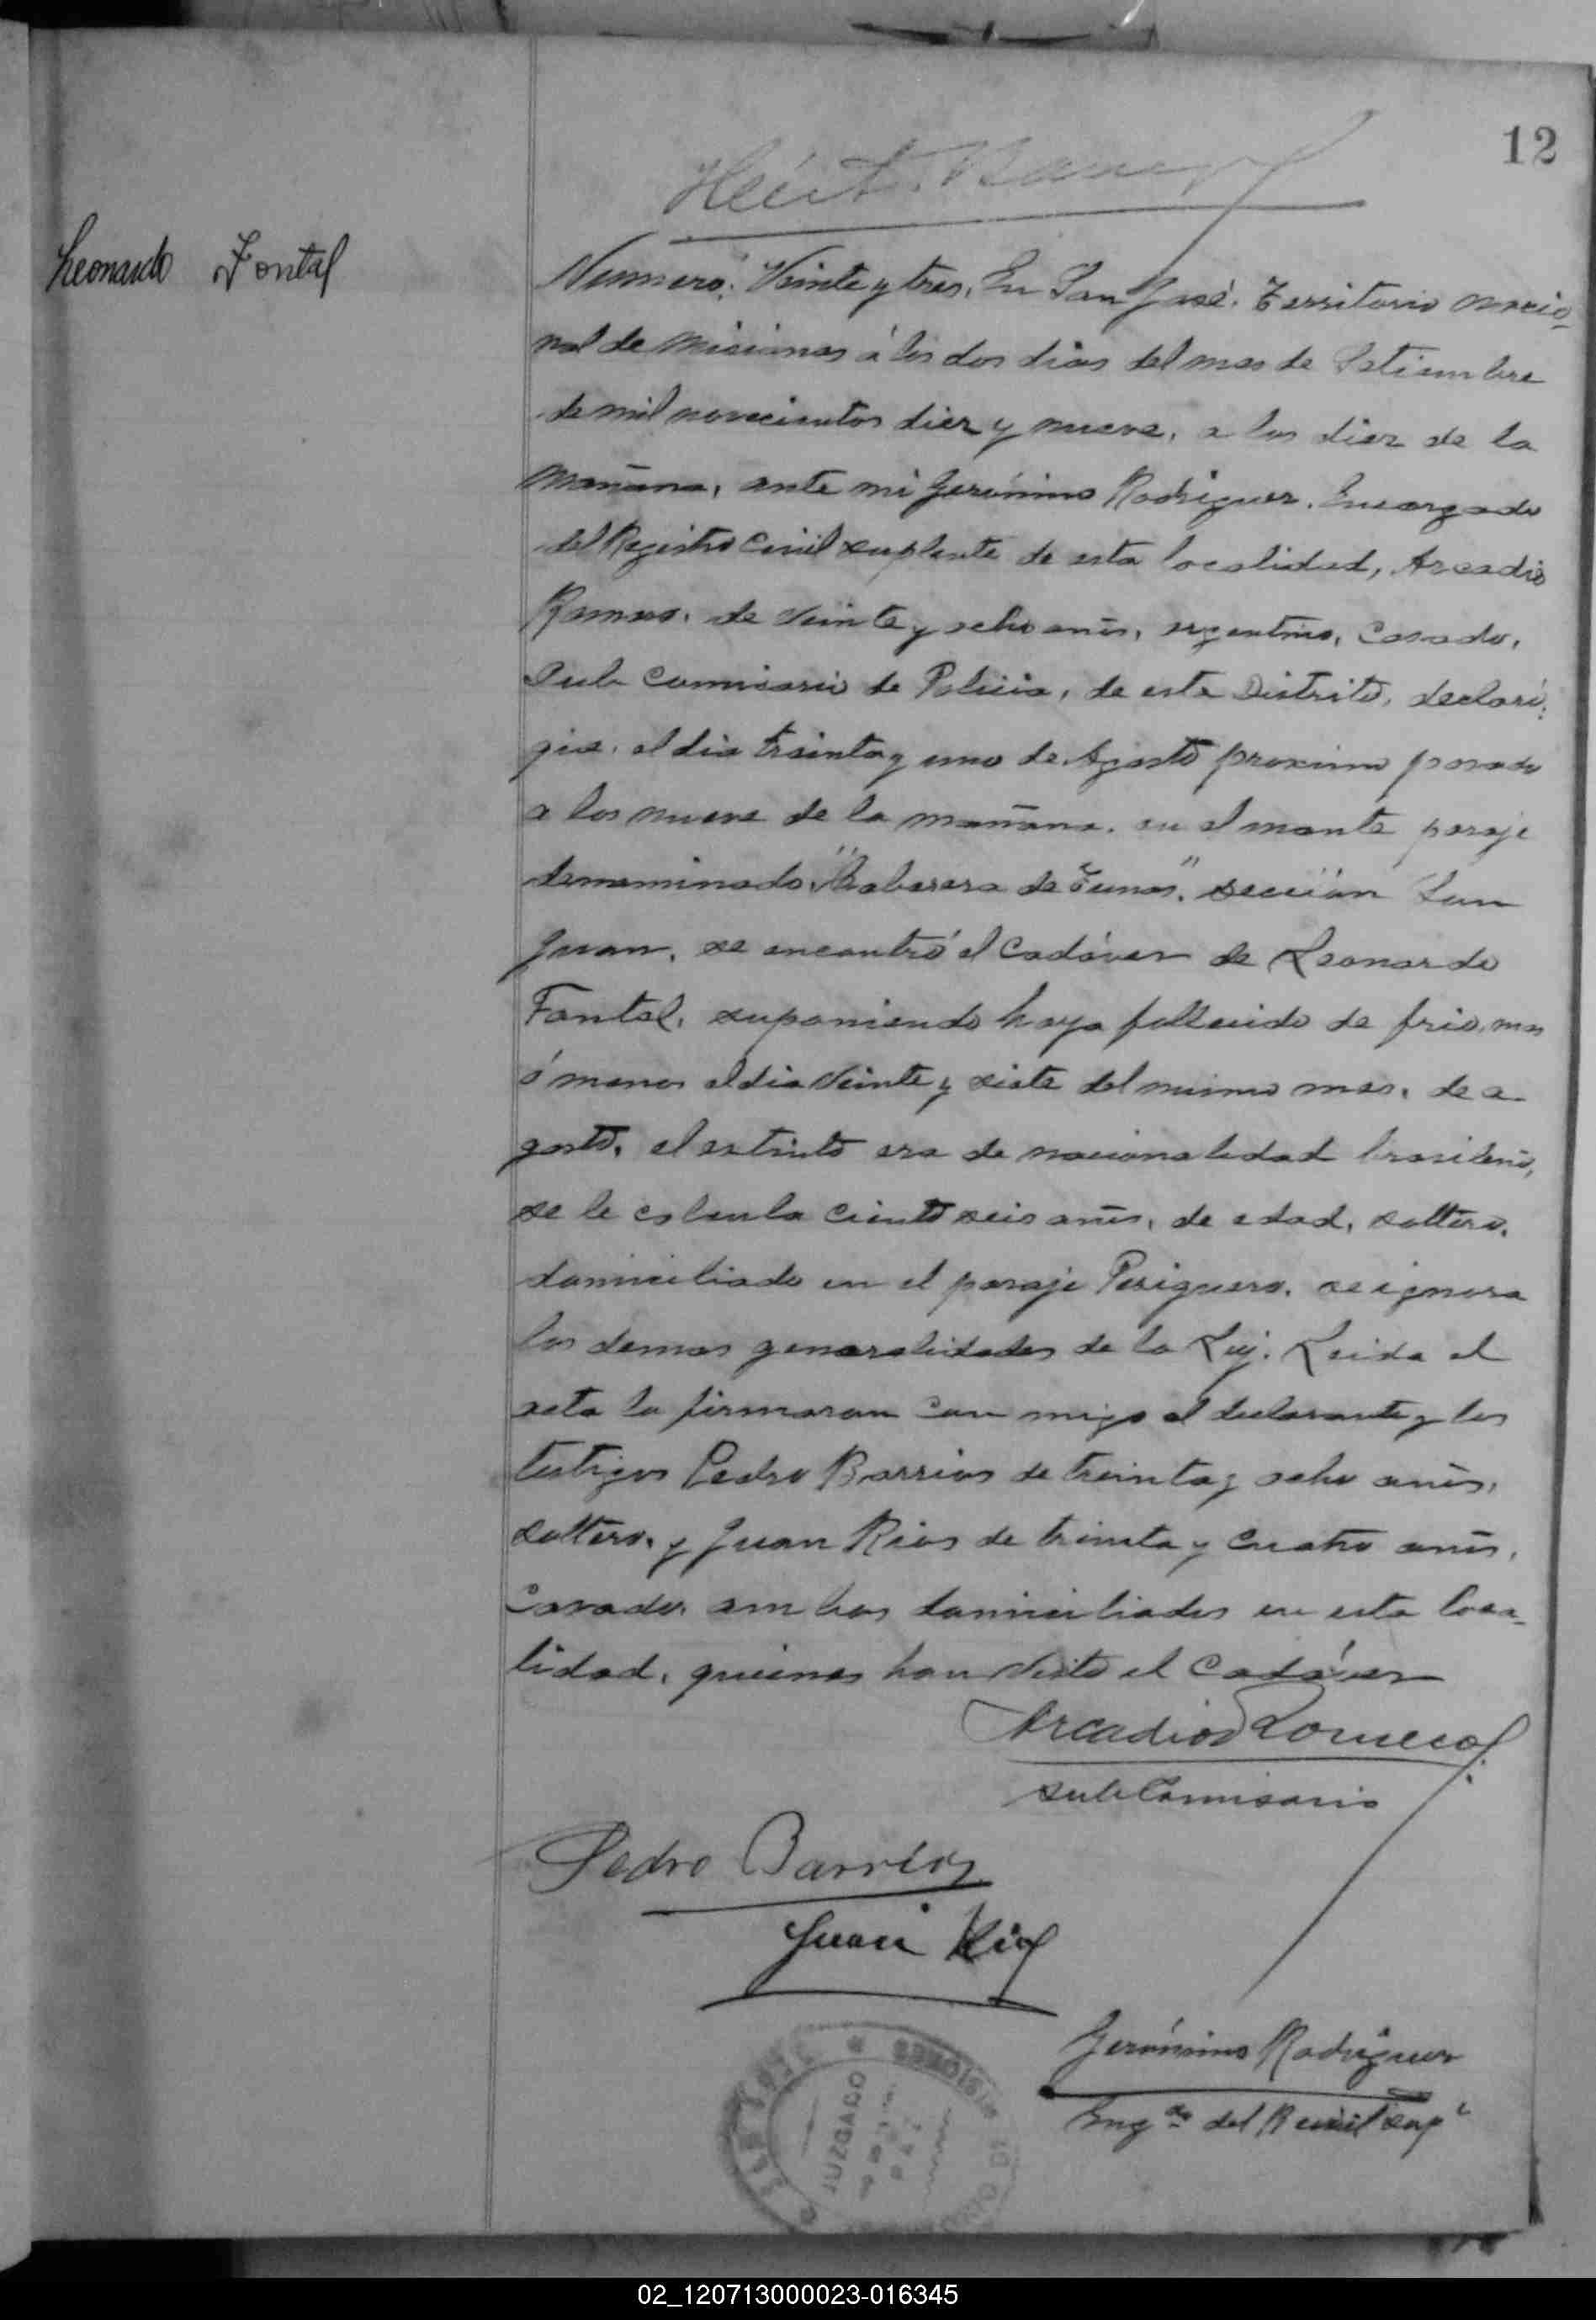 12
Leonardo Fontal
Numero: Veinte y tres. En San José. Territorio nacio-
nal de Misiones á los dos dias del mes de Setiembre
de mil novecientos diez y nueve, a las diez de la
mañana, ante mi Jerónimo Rodriguez. Encargado
del Registro Civil suplente de esta localidad, Arcadio
Romero. de veinte y ocho años, argentino, casado,
Sub Comisario de Policia, de este Distrito, declaró:
que, el dia treinta y uno de Agosto proximo pasado
a las nueve de la mañana. en el monte paraje
denominado, "Cabesera de Tunas". sección San
Juan, se encontró el Cadáver de Leonardo
Fontal, suponiendo haya fallecido de frio, mas
ó menos el dia veinte y siete del mismo mes, de a-
gosto, el extinto era de nacionalidad brasilero,
se le calcula ciento seis años, de edad, soltero,
domiciliado en el paraje se ignora
las demas generalidades de la Ley. Leida el
acta la firmaron con migo el declarante y los
testigos Pedro Barrios de treinta y ocho años,
soltero, y Juan Rios de treinta y cuatro años,
Casado, ambos domiciliados en esta loca-
lidad, quienes han visto el Cadáver
Arcadio Romero
Sub Comisario
Pedro Barrios
Juan Rios
Jerónimo Rodriguez
Eng do del R civil sup e
JUZGADO
MISIONES
02_120713000023-016345